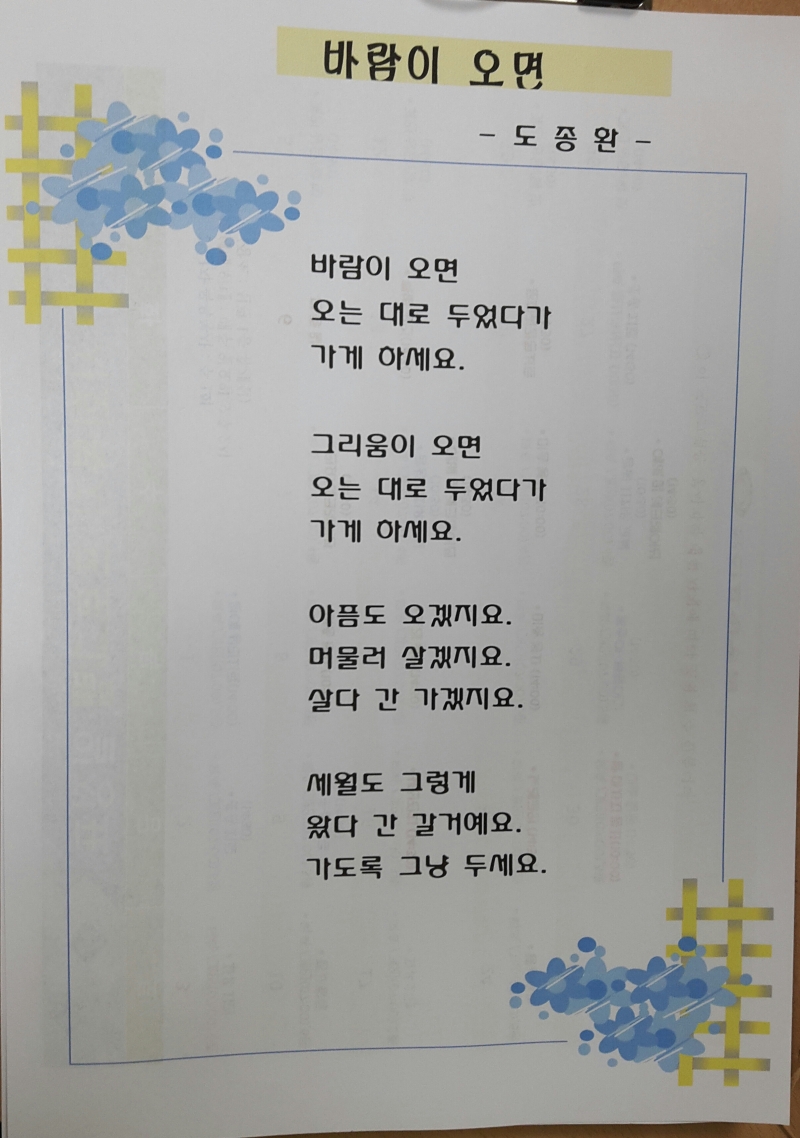 바람이 오면
- 도 종 환 -
바람이 오면
오는 대로 두었다가
가게 하세요.
그리움이 오면
오는 대로 두었다가
가게 하세요.
아픔도 오겠지요.
머물러 살겠지요.
살다 간 가겠지요.
세월도 그렇게
왔다 간 갈거예요.
가도록 그냥 두세요.